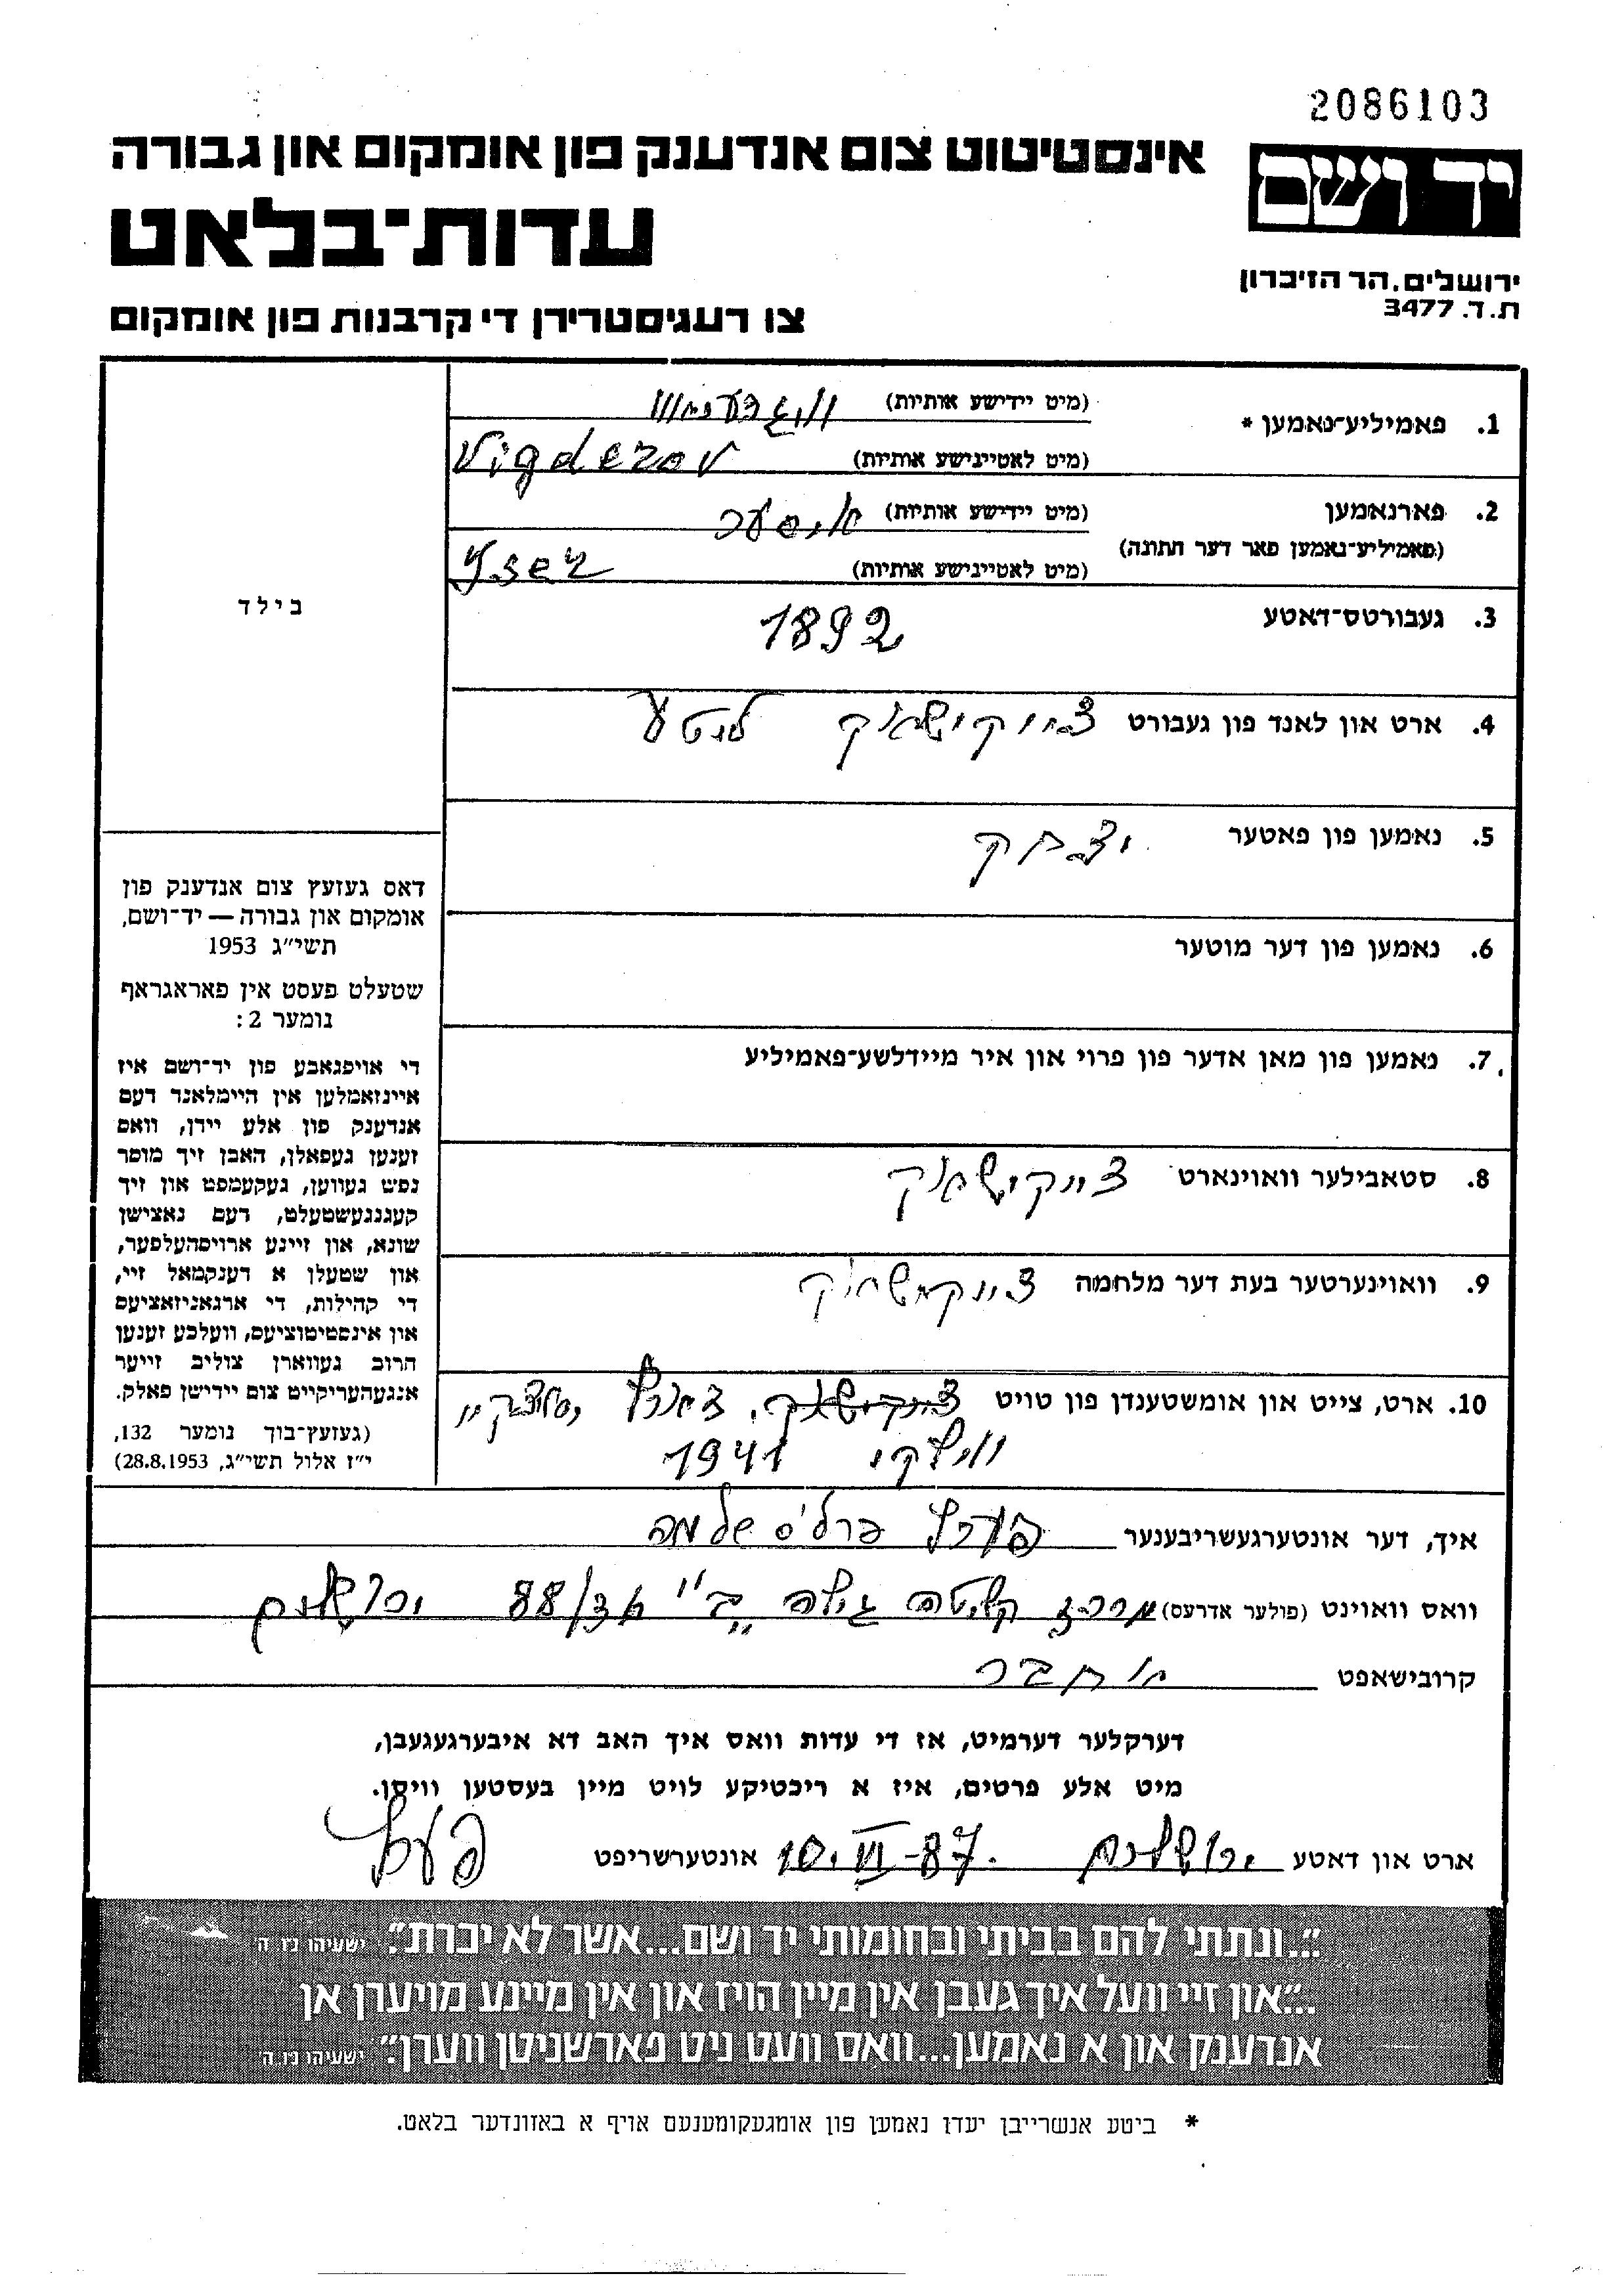 2086103
יד ושם
אינסטיטוט צום אנדענק פון אומקום און גבורה
עדות-בלאט
ירושלים, הר הזיכרון
ת.ד. 3477
צו רעגיסטרירן די קרבנות פון אומקום
1. פאמיליע-נאמען * (מיט יידישע אותיות)
(מיט לאטיינישע אותיות) Vigderov
2. פארנאמען (מיט יידישע אותיות) איסער
(פאמיליע-נאמען פאר דער חתונה)
(מיט לאטיינישע אותיות) Yser
3. געבורטס-דאטע 1892
4. ארט און לאנד פון געבורט ציוקישאק ליטע
5. נאמען פון פאטער יצחק
6. נאמען פון דער מוטער
7. נאמען פון מאן אדער פון פרוי און איר מיידלשע-פאמיליע
8. סטאבילער וואוינארט ציקישאק
9. וואוינערטער בעת דער מלחמה
10. ארט, צייט און אומשטענדן פון טויט
1941
בילד
דאס געזעץ צום אנדענק פון
אומקום און גבורה — יד-ושם,
תשי״ג 1953
שטעלט פעסט אין פאראגראף
נומער 2:
די אויפגאבע פון יד-ושם איז
איינזאמלען אין היימלאנד דעם
אנדענק פון אלע יידן, וואס
זענען געפאלן, האבן זיך מוסר
נפש געווען, געקעמפט און זיך
קעגנגעשטעלט, דעם נאצישן
שונא, און זיינע ארויסהעלפער,
און שטעלן א דענקמאל זיי,
די קהילות, די ארגאניזאציעס
און אינסטיטוציעס, וועלכע זענען
חרוב געווארן צוליב זייער
אנגעהעריקייט צום יידישן פאלק.
(געזעץ-בוך נומער 132,
י״ז אלול תשי״ג, 28.8.1953)
איך, דער אונטערגעשריבענער פערלץ פרל'ס שלמה
וואס וואוינט (פולער אדרעס) מרכז קליטה גילה 88/ ירושלים
קרובישאפט מחבר
דערקלער דערמיט, אז די עדות וואס איך האב דא איבערגעגעבן,
מיט אלע פרטים, איז א ריכטיקע לויט מיין בעסטען וויסן.
ארט און דאטע ירושלים 10.VI-87. אונטערשריפט
"...ונתתי להם בביתי ובחומותי יד ושם...אשר לא יכרת." ישעיהו נ״ו ה'
..."און זיי וועל איך געבן אין מיין הויז און אין מיינע מויערן אן
אנדענק און א נאמען...וואס וועט ניט פארשניטן ווערן." ישעיהו נ״ו ה'
* ביטע אנשרייבן יעדן נאמען פון אומגעקומענעם אויף א באזונדער בלאט.